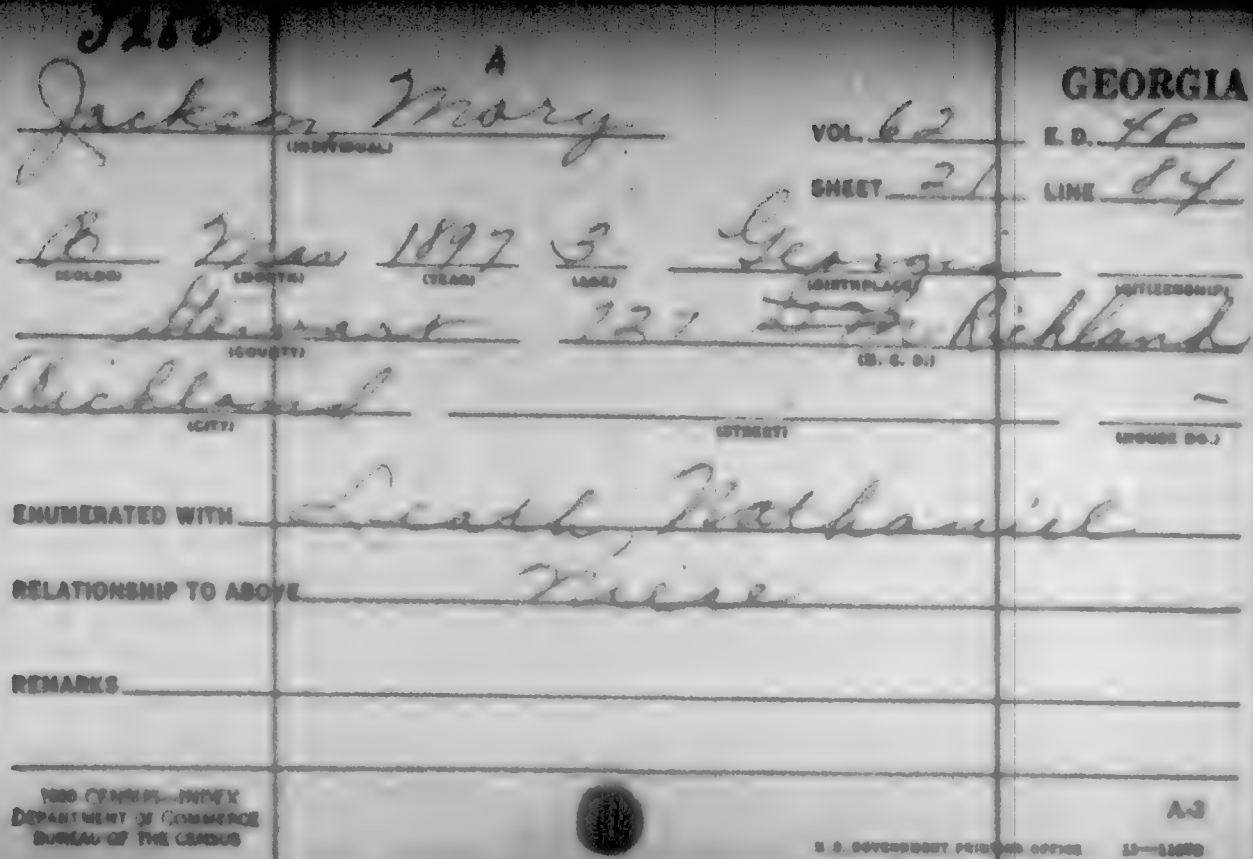 J250
A
GEORGIA
Jackson, Mary
(INDIVIDUAL)
VOL. 62 E. D.
SHEET 21 LINE 84
B 1897 3 Georgia
(COLOR) (MONTH) (YEAR) (AGE) (BIRTHPLACE) (CITIZENSHIP)
Stewart Richland
(COUNTY) (M. C. D.)
Richland -
(CITY) (STREET) (HOUSE NO.)
ENUMERATED WITH Nathaniel
RELATIONSHIP TO ABOVE Niese
REMARKS
CENSUS—INDEX
DEPARTMENT OF COMMERCE
BUREAU OF THE CENSUS
A-3
U. S. GOVERNMENT PRINTING OFFICE